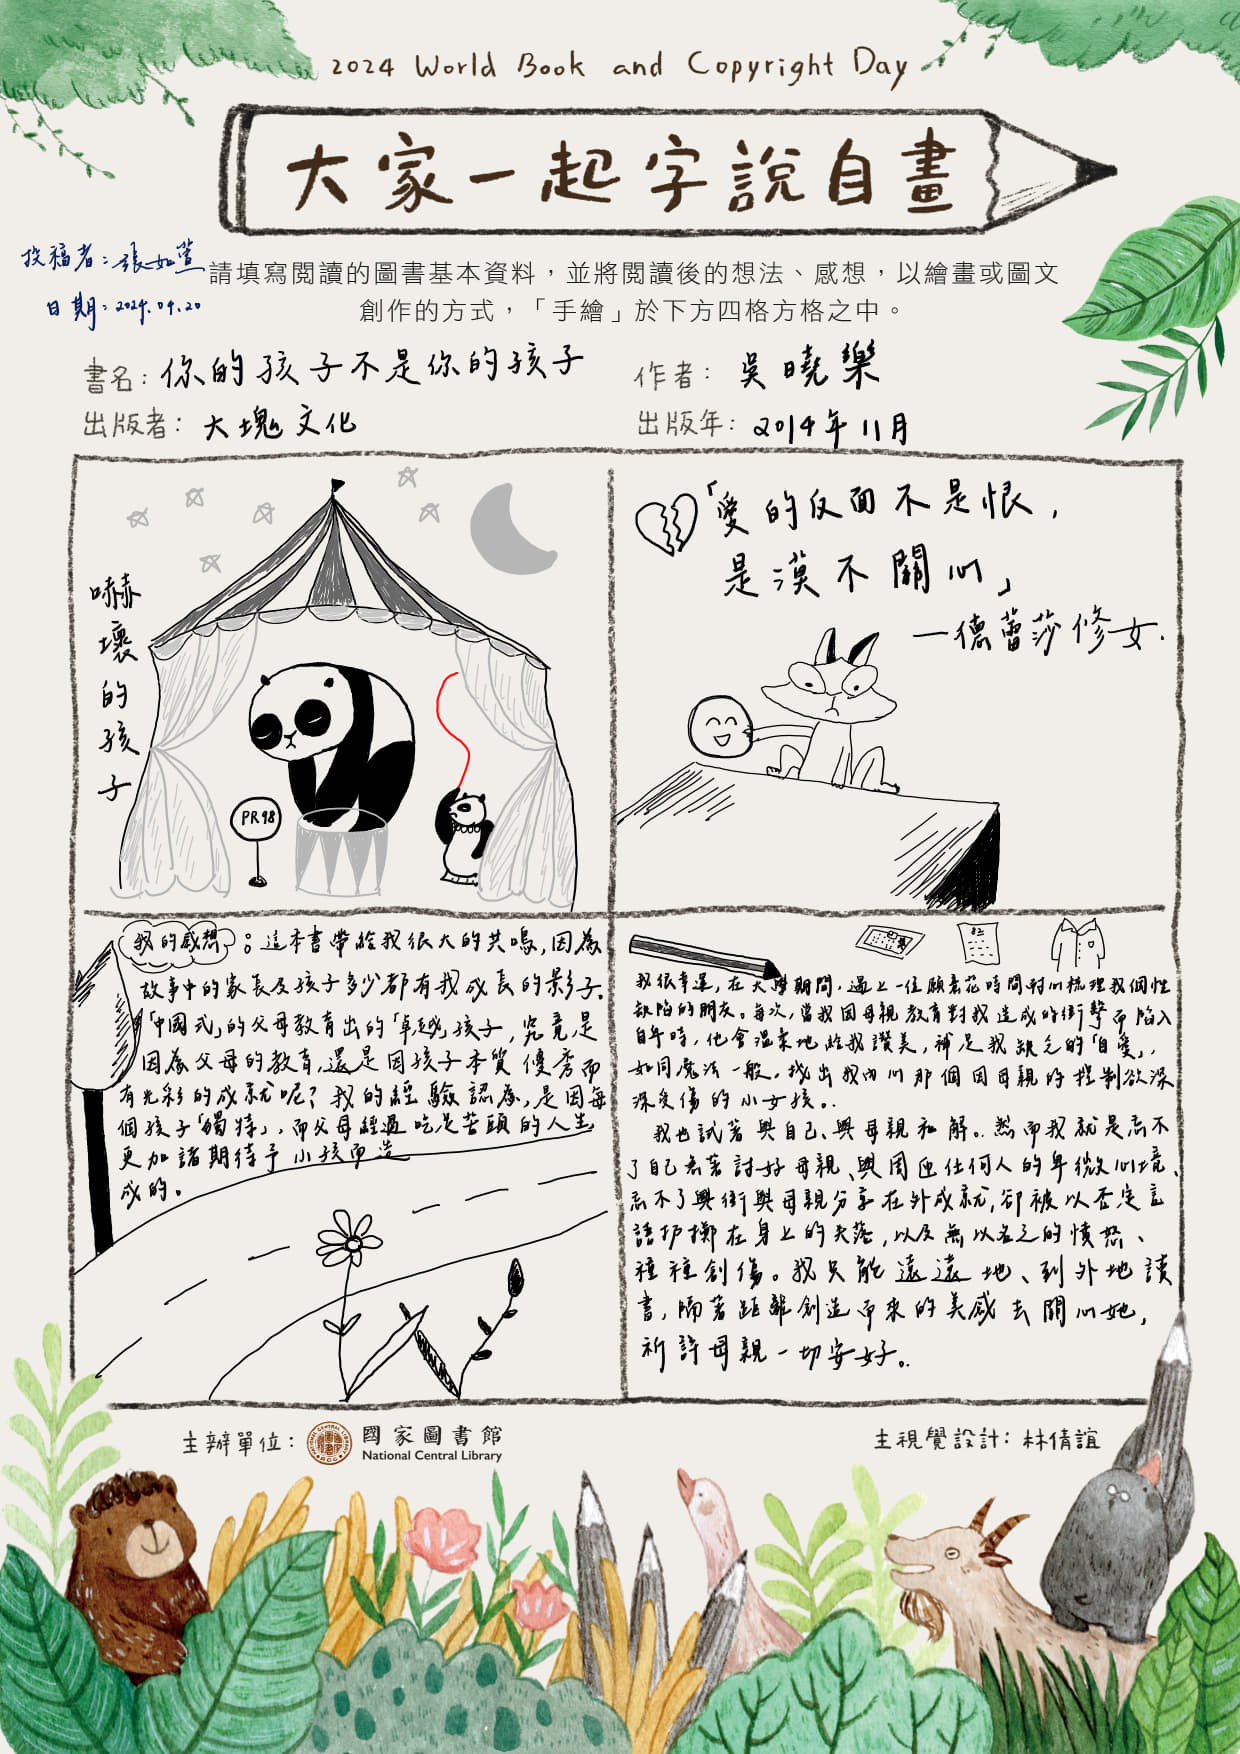 2024 World Book and Copyright Day
大家一起字說自畫
投稿者：張如萱
日期：2024.04.20
請填寫閱讀的圖書基本資料，並將閱讀後的想法、感想，以繪畫或圖文
創作的方式，「手繪」於下方四格方格之中。
書名：你的孩子不是你的孩子
作者：吳曉樂
出版者：大塊文化
出版年：2014年11月
嚇壞的孩子
PR98
「愛的反面不是恨，
是漠不關心」
—德蕾莎修女.
我的感想：這本書帶給我很大的共鳴，因為
故事中的家長及孩子多少都有我成長的影子。
「中國式」的父母教育出的「卓越」孩子，究竟是
因為父母的教育，還是因孩子本質優秀而
有光彩的成就呢？我的經驗認為，是因每
個孩子「獨特」，而父母經過吃足苦頭的人生
更加諸期待予小孩而造
成的。
我很幸運，在大學期間，遇上一位願意花時間耐心梳理我個性
缺陷的朋友。每次，當我因母親教育對我造成的衝擊而陷入
自卑時，他會溫柔地給我讚美，補足我缺乏的「自愛」，
如同魔法一般，找出我內心那個因母親的控制欲深
深受傷的小女孩。
我也試著與自己、與母親和解。然而我就是忘不
了自己為著討好母親、與周匝任何人的卑微心境、
忘不了興衝與母親分享在外成就，卻被以否定言
語扔擲在身上的失落，以及無以名之的憤怒、
種種創傷。我只能遠遠地、到外地讀
書，隔著距離創造而來的美感去關心她，
祈許母親一切安好。
主辦單位：國家圖書館
National Central Library
主視覺設計：林倩誼